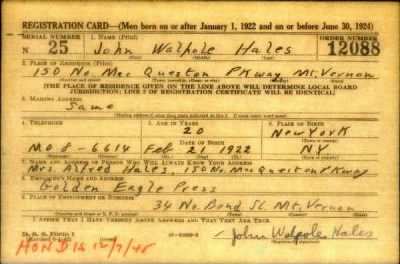 REGISTRATION CARD—(Men born on or after January 1, 1922 and on or before June 30, 1924)
SERIAL NUMBER 1. NAME (Print) ORDER NUMBER
N 25 John Walpole Hales 12088
2. PLACE OF RESIDENCE (Print)
150 No. Mac Queston PKway Mt. Vernon
(THE PLACE OF RESIDENCE GIVEN ON THE LINE ABOVE WILL DETERMINE LOCAL BOARD
JURISDICTION; LINE 2 OF REGISTRATION CERTIFICATE WILL BE IDENTICAL)
3. MAILING ADDRESS
Same
4. TELEPHONE 5. AGE IN YEARS 6. PLACE OF BIRTH
20 New York
DATE OF BIRTH
MO 8-6614 Feb 21 1922 N.Y.
7. NAME AND ADDRESS OF PERSON WHO WILL ALWAYS KNOW YOUR ADDRESS
Mrs. Alfred Hales, 150 No. Mac Queston PKway
8. EMPLOYER'S NAME AND ADDRESS
Golden Eagle Press
9. PLACE OF EMPLOYMENT OR BUSINESS
34 No. Bond St. Mt. Vernon
I AFFIRM THAT I HAVE VERIFIED ABOVE ANSWERS AND THAT THEY ARE TRUE.
D. S. S. Form 1
John Walpole Hales